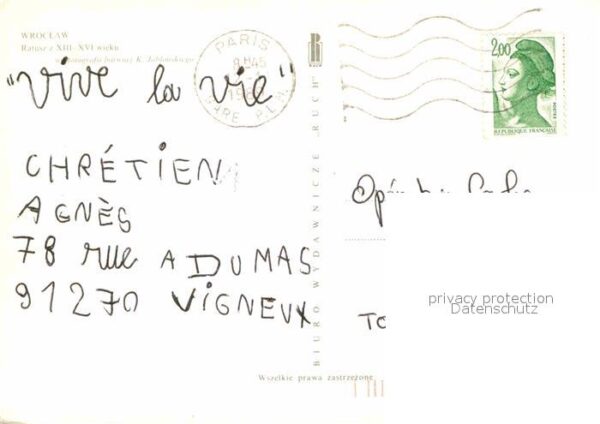 WROCŁAW
Ratusz z XIII–XVI wieku
fotografia barwna K. Jabłońskiego
"Vive la vie"
CHRÉTIEN
AGNÈS
78 rue A DUMAS
91270 VIGNEUX
PARIS
GARE P.L.M
BIURO WYDAWNICZE "RUCH"
Wszelkie prawa zastrzeżone
2,00
POSTES
REPUBLIQUE FRANÇAISE
privacy protection
Datenschutz